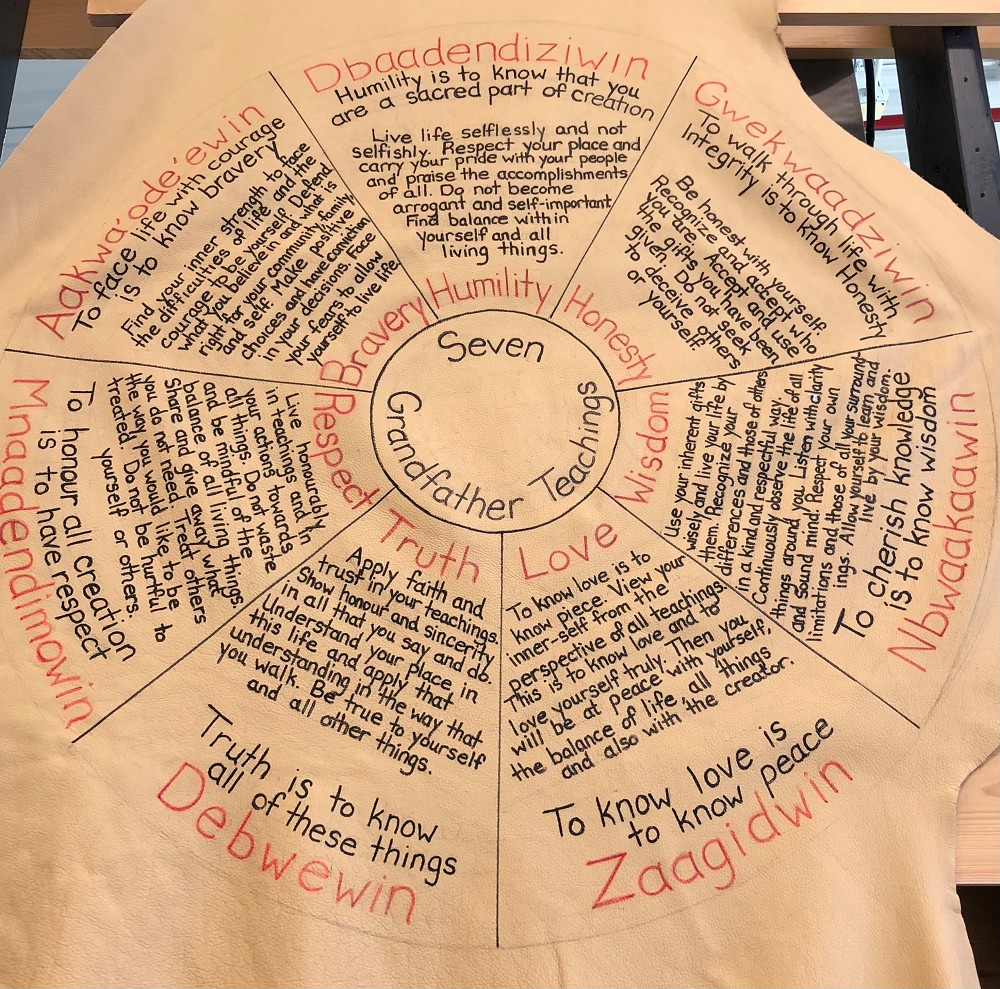 Seven
Grandfather Teachings
Dbaadendiziwin
Humility is to know that you
are a sacred part of creation
Live life selflessly and not
selfishly. Respect your place and
carry your pride with your people
and praise the accomplishments
of all. Do not become
arrogant and self-important.
Find balance within
yourself and all
living things.
Humility
Gwekwaadziwin
To walk through life with
Integrity is to know Honesty
Be honest with yourself.
Recognize and accept who
you are. Accept and use
the gifts you have been
given. Do not seek
to deceive others
or yourself.
Honesty
Nbwaakaawin
To cherish knowledge
is to know wisdom
Use your inherent gifts
wisely and live your life by
them. Recognize your
differences and those of others
in a kind and respectful way.
Continuously observe the life of all
things around you. Listen with clarity
and sound mind. Respect your own
limitations and those of all your surround-
ings. Allow yourself to learn and
live by your wisdom.
Wisdom
Love
To know love is to
know piece. View your
inner-self from the
perspective of all teachings.
This is to know love and to
love yourself truly. Then you
will be at peace with yourself,
the balance of life, all things
and also with the creator.
To know love is
to know peace
Zaagidwin
Truth
Apply faith and
trust in your teachings.
Show honour and sincerity
in all that you say and do.
Understand your place, in
this life and apply that
understanding in the way that
you walk. Be true to yourself
and all other things.
Truth is to know
all of these things
Debwewin
Respect
Live honourably
in teachings and in
your actions towards
all things. Do not waste
and be mindful of the
balance of all living things.
Share and give away what
you do not need. Treat others
the way you would like to be
treated. Do not be hurtful to
yourself or others.
To honour all creation
is to have respect
Mnaadendimowin
Aakwa'ode'ewin
To face life with courage
is to know bravery
Find your inner strength to face
the difficulties of life and the
courage to be yourself. Defend
what you believe in and what is
right for your community, family
and self. Make positive
choices and have conviction
in your decisions. Face
your fears to allow
yourself to live life.
Bravery